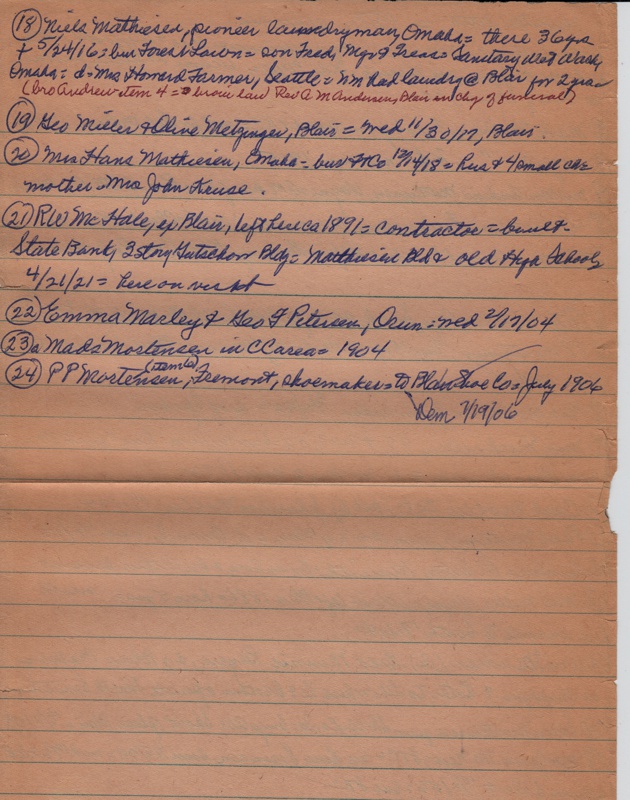 (18) Niels Mathiesen, pioneer laundryman, Omaha = there 36 yrs
+ 5/24/16 = bur Forest Lawn = son Fred, Mgr & Treas = Sanitary Wet Wash,
Omaha = d = Mrs Howard Farmer, Seattle = NM had laundry @ Blair for 2 yrs
(bro Andrew item 4 = bro in law Rev A M Andersen, Blair in chg of funeral)
(19) Geo Mieler & Olive Metzinger, Blair = wed 11/30/17, Blair.
(20) Mrs Hans Mathiesen, Omaha = bur 12/14/18 = hus & 4 small
mother = Mrs John Kruse.
(21) RW McHale, ex Blair, left here ca 1891 = contractor = built
State Bank, 3 story Gutschow Bldg = Matthiesen Bld & old High School
4/21/21 = here on visit
(22) Emma Marley & Geo F Petersen, Orum = wed 2/17/04
(23) a Mads Mortensen in CC area = 1904
(24) PP Mortensen, (item 6) Fremont, shoemaker = to Blair Shoe Co = July 1906
Dem 7/19/06